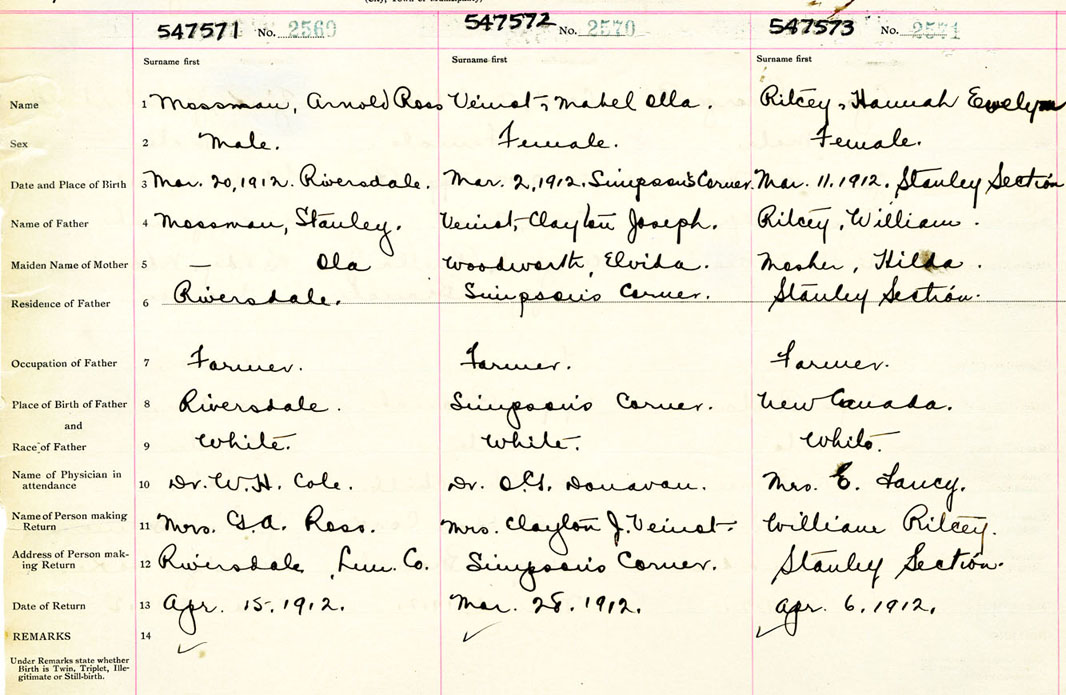 547571 No. 2569 547572 No. 2570 547573 No. 2571
Surname first Surname first Surname first
Name 1 Mossman, Arnold Ross Veinot, Mabel Olla. Ritcey, Hannah Ewelyn
Sex 2 Male. Female. Female.
Date and Place of Birth 3 Mar. 20, 1912. Riversdale. Mar. 2, 1912. Simpson's Corner. Mar. 11. 1912. Stanley Section
Name of Father 4 Mossman, Stanley. Veinot, Clayton Joseph. Ritcey, William.
Maiden Name of Mother 5 — Ola Woodworth, Elvida. Mosher, Hilda.
Residence of Father 6 Riversdale. Simpson's Corner. Stanley Section.
Occupation of Father 7 Farmer. Farmer. Farmer.
Place of Birth of Father 8 Riversdale. Simpson's Corner. New Canada.
and
Race of Father 9 White. White. White.
Name of Physician in
attendance 10 Dr. W. H. Cole. Dr. Donavan. Mrs. E. Lancy.
Name of Person making
Return 11 Mrs. Ross. Mrs. Clayton J. Veinot. William Ritcey.
Address of Person mak-
ing Return 12 Riversdale, Lun. Co. Simpson's Corner. Stanley Section.
Date of Return 13 Apr. 15. 1912. Mar. 28. 1912. Apr. 6. 1912.
REMARKS 14
Under Remarks state whether
Birth is Twin, Triplet, Ille-
gitimate or Still-birth.